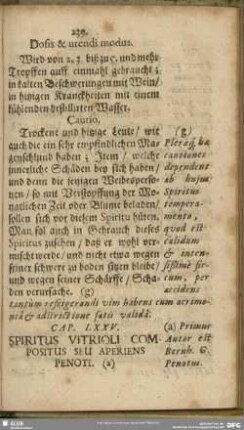 239.
Dosis & utendi modus.
Wird von 2. 3. biß zu 5. und mehr
Tropffen auff einmahl gebraucht;
in kalten Beschwerungen mit Wein/
in hitzigen Kranckheiten mit einem
kühlenden destillirten Wasser.
Cautio.
Trockene und hitzige Leute/ wie
auch die ein sehr empfindlichen Ma-
genschlund haben; Item/ welche
innerliche Schäden bey sich haben/
und denn die jenigen Weibsperso-
nen/ so mit Verstopffung der Mo-
natlichen Zeit oder Blume beladen/
sollen sich vor diesem Spiritu hüten.
Man sol auch in Gebrauch dieses
Spiritus zusehen/ daß er wohl ver-
mischt werde/ und nicht etwa wegen
seiner schwere zu boden sitzen bleibe/
und wegen seiner Schärffe/ Scha-
den verursache. (g)
(g)
Pleraq; hæ
cautiones
dependent
ab hujus
Spiritus
tempera-
mento,
quod est
calidum
& inten-
sissimè sic-
cum, per
accidens
tantùm refrigerandi vim habens cum acrimo-
niâ & adstrictione satis validâ.
CAP. LXXV.
SPIRITUS VITRIOLI COM-
POSITUS SEU APERIENS
PENOTI. (a)
(a) Primus
Autor est
Bernh. G.
Penotus.